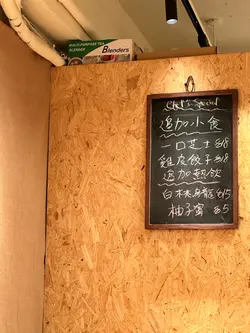 MULTI-PURPOSE TEA
Blenders
Chef's Special
追加小食
一口芝士 $18
雞皮餃子 $18
追加熱飲
白桃烏龍 $15
柚子蜜 $5